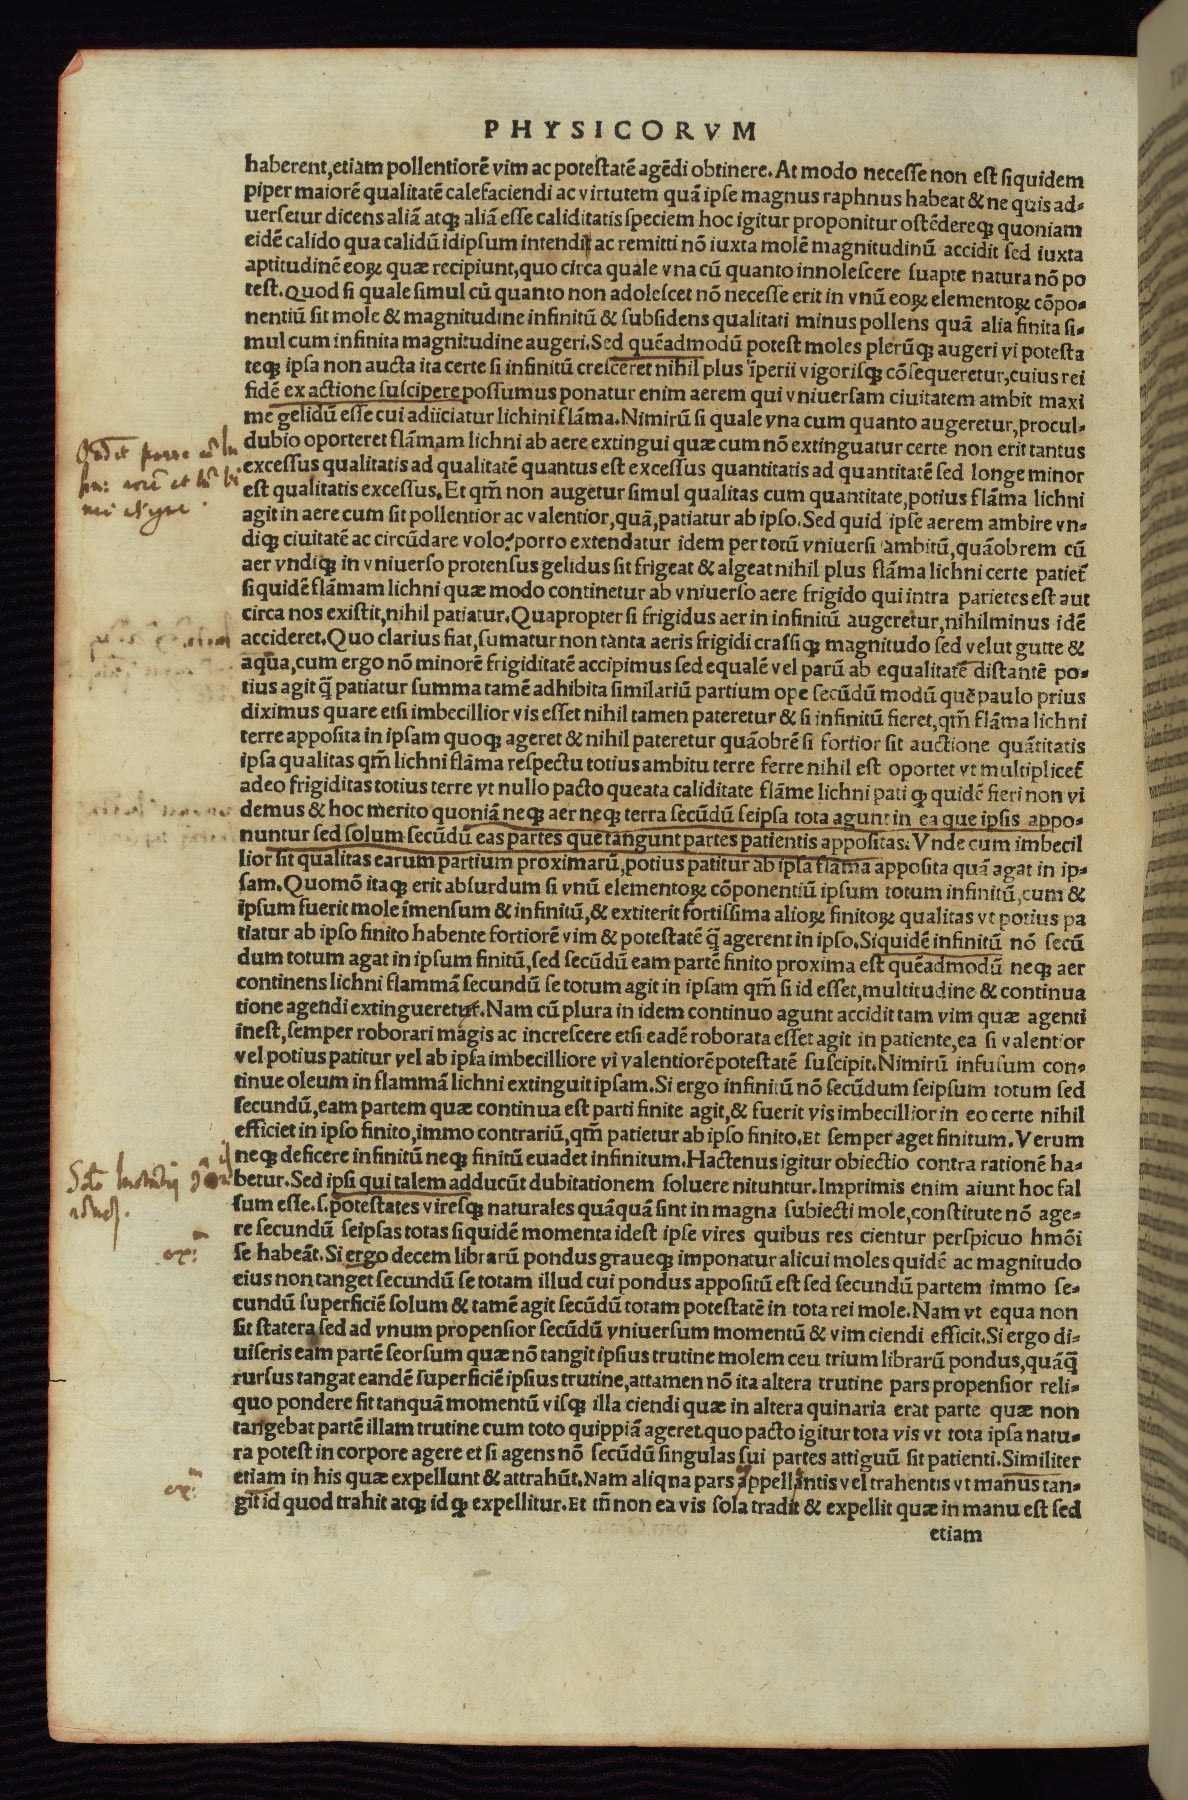 PHYSICORVM
haberent,etiam pollentiorē vim ac potestatē agēdi obtinere. At modo necesse non est siquidem
piper maiorē qualitatē calefaciendi ac virtutem quā ipse magnus raphnus habeat & ne quis ad-
uersetur dicens aliā atqꝫ aliā esse caliditatis speciem hoc igitur proponitur ostēdereqꝫ quoniam
eidē calido qua calidū idipsum intendit ac remitti nō iuxta molē magnitudinū accidit sed iuxta
aptitudinē eoꝝ quæ recipiunt,quo circa quale vna cū quanto innolescere suapte natura nō po
test. Quod si quale simul cū quanto non adolescet nō necesse erit in vnū eoꝝ elementoꝝ cōpo-
nentiū sit mole & magnitudine infinitū & subsidens qualitati minus pollens quā alia finita si-
mul cum infinita magnitudine augeri. Sed quēadmodū potest moles plerūqꝫ augeri vi potesta
teqꝫ ipsa non aucta ita certe si infinitū cresceret nihil plus īperii vigorisqꝫ cōsequeretur,cuius rei
fidē ex actione suscipere possumus ponatur enim aerem qui vniuersam ciuitatem ambit maxi
me gelidū esse cui adiiciatur lichini flāma. Nimirū si quale vna cum quanto augeretur,procul-
dubio oporteret flāmam lichni ab aere extingui quæ cum nō extinguatur certe non erit tantus
excessus qualitatis ad qualitatē quantus est excessus quantitatis ad quantitatē sed longe minor
est qualitatis excessus. Et qm̄ non augetur simul qualitas cum quantitate,potius flāma lichni
agit in aere cum sit pollentior ac valentior,quā,patiatur ab ipso. Sed quid ipse aerem ambire vn-
diqꝫ ciuitatē ac circūdare volo? porro extendatur idem per totū vniuersi ambitū,quāobrem cū
aer vndiqꝫ in vniuerso protensus gelidus sit frigeat & algeat nihil plus flāma lichni certe patiet̄
siquidē flāmam lichni quæ modo continetur ab vniuerso aere frigido qui intra parietes est aut
circa nos existit,nihil patiatur. Quapropter si frigidus aer in infinitū augeretur,nihilminus idē
accideret. Quo clarius fiat,sumatur non tanta aeris frigidi crassiqꝫ magnitudo sed velut gutte &
aqua,cum ergo nō minorē frigiditatē accipimus sed equalē vel parū ab equalitatē distantē po-
tius agit q̄ patiatur summa tamē adhibita similariū partium ope secūdū modū quē paulo prius
diximus quare etsi imbecillior vis esset nihil tamen pateretur & si infinitū fieret,qm̄ flāma lichni
terre apposita in ipsam quoqꝫ ageret & nihil pateretur quāobrē si fortior sit auctione quātitatis
ipsa qualitas qm̄ lichni flāma respectu totius ambitu terre ferre nihil est oportet vt multiplicet̄
adeo frigiditas totius terre vt nullo pacto queata caliditate flāme lichni pati qꝫ quidē fieri non vi
demus & hoc merito quoniā neqꝫ aer neqꝫ terra secūdū seipsa tota agunt in ea que ipsis appo-
nuntur sed solum secūdū eas partes que tangunt partes patientis appositas. Vnde cum imbecil
lior sit qualitas earum partium proximarū,potius patitur ab ipsa flāma apposita quā agat in ip-
sam. Quomō itaqꝫ erit absurdum si vnū elementoꝝ cōponentiū ipsum totum infinitū,cum &
ipsum fuerit mole īmensum & infinitū,& extiterit fortissima alioꝝ finitoꝝ qualitas vt potius pa
tiatur ab ipso finito habente fortiorē vim & potestatē q̄ agerent in ipso. Siquidē infinitū nō secū
dum totum agat in ipsum finitū,sed secūdū eam partē finito proxima est quēadmodū neqꝫ aer
continens lichni flammā secundū se totum agit in ipsam qm̄ si id esset,multitudine & continua
tione agendi extingueretur. Nam cū plura in idem continuo agunt accidit tam vim quæ agenti
inest,semper roborari magis ac increscere etsi eadē roborata esset agit in patiente,ea si valentior
vel potius patitur vel ab ipsa imbecilliore vi valentiorē potestatē suscipit. Nimirū infusum con-
tinue oleum in flammā lichni extinguit ipsam. Si ergo infinitū nō secūdum seipsum totum sed
secundū,eam partem quæ continua est parti finite agit,& fuerit vis imbecillior in eo certe nihil
efficiet in ipso finito,immo contrariū,qm̄ patietur ab ipso finito. Et semper aget finitum. Verum
neqꝫ deficere infinitū neqꝫ finitū euadet infinitum. Hactenus igitur obiectio contra rationē ha-
betur. Sed ipsi qui talem adducūt dubitationem soluere nituntur. Imprimis enim aiunt hoc fal
sum esse. s. potestates viresqꝫ naturales quāquā sint in magna subiecti mole,constitute nō age-
re secundū seipsas totas siquidē momenta idest ipse vires quibus res cientur perspicuo hmōi
se habeāt. Si ergo decem librarū pondus graueqꝫ imponatur alicui moles quidē ac magnitudo
eius non tanget secundū se totam illud cui pondus appositū est sed secundū partem immo se-
cundū superficiē solum & tamē agit secūdū totam potestatē in tota rei mole. Nam vt equa non
sit statera sed ad vnum propensior secūdū vniuersum momentū & vim ciendi efficit. Si ergo di-
uiseris eam partē seorsum quæ nō tangit ipsius trutine molem ceu trium librarū pondus,quāq̄
rursus tangat eandē superficiē ipsius trutine,attamen nō ita altera trutine pars propensior reli-
quo pondere fit tanquā momentū visqꝫ illa ciendi quæ in altera quinaria erat parte quæ non
tangebat partē illam trutine cum toto quippiā ageret.quo pacto igitur tota vis vt tota ipsa natu-
ra potest in corpore agere et si agens nō secūdū singulas sui partes attiguū sit patienti. Similiter
etiam in his quæ expellunt & attrahūt. Nam aliqna pars appellantis vel trahentis vt manus tan-
git id quod trahit atqꝫ id qꝫ expellitur. Et tn̄ non ea vis sola tradit & expellit quæ in manu est sed
etiam